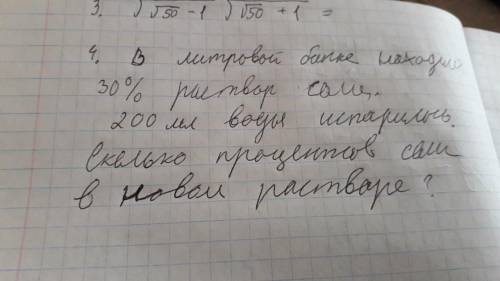 3. √(√50 - 1) √(√50 + 1) =
4. В литровой банке находил
30% раствор соли.
200 мл воды испарилось.
Сколько процентов соли
в новом растваре?